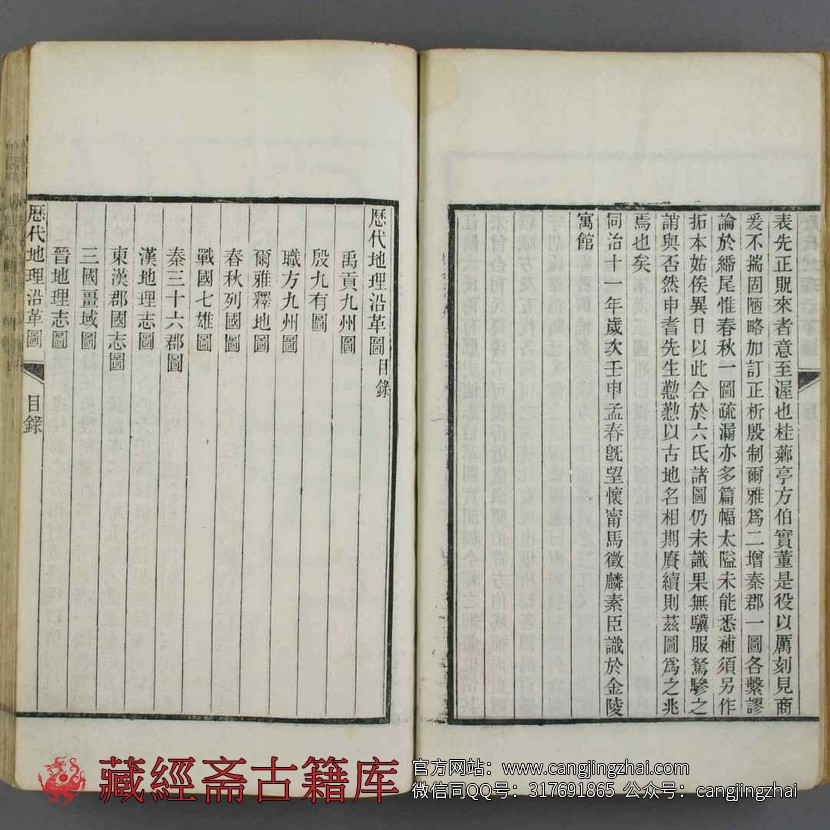 表先正旣來者意至渥也桂薌亭方伯實董是役以厲刻見商
爰不揣固陋略加訂正析殷制爾雅爲二增秦郡一圖各繫謬
論於繙尾惟春秋一圖疏漏亦多篇幅太隘未能悉補須另作
拓本姑俟異日以此合於六氏諸圖仍未識果無驥服駑驂之
誚與否然申耆先生懃懃以古地名相期賡續則茲圖爲之兆
焉也矣
同治十一年歲次壬申孟春旣望懷甯馬徵麟素臣識於金陵
寓館
歷代地理沿革圖目錄
禹貢九州圖
殷九有圖
職方九州圖
爾雅釋地圖
春秋列國圖
戰國七雄圖
秦三十六郡圖
漢地理志圖
東漢郡國志圖
三國畺域圖
晉地理志圖
歷代地理沿革圖 目錄
藏經斋古籍库
官方网站：www.cangjingzhai.com
微信同QQ号：317691865 公众号：cangjingzhai